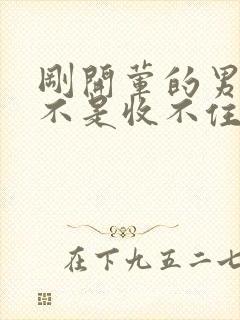 剛開葷的男
不是收不住
在下九五二七